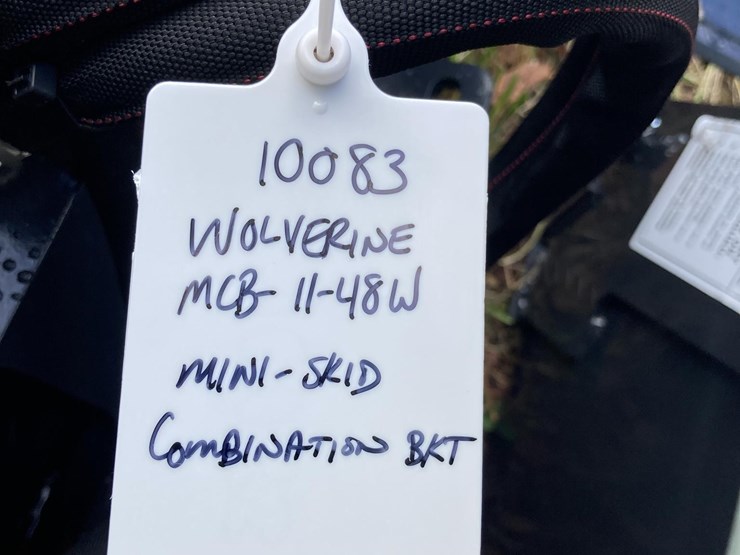 10083
WOLVERINE
MCB-11-48W
MINI-SKID
COMBINATION BKT